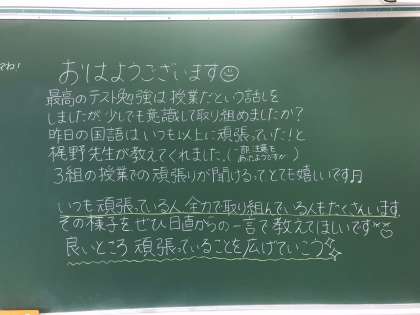 てね！
おはようございます
最高のテスト勉強は授業だという話しを
しましたが少しでも意識して取り組めましたか？
昨日の国語はいつも以上に頑張っていた！と
梶野先生が教えてくれました。（ あったようですが ）
3組の授業での頑張りが聞けるってとても嬉しいです♬
いつも頑張っている人、全力で取り組んでいる人もたくさんいます
その様子をぜひ日直からの一言で教えてほしいです
良いところ頑張っていることを広げていこう